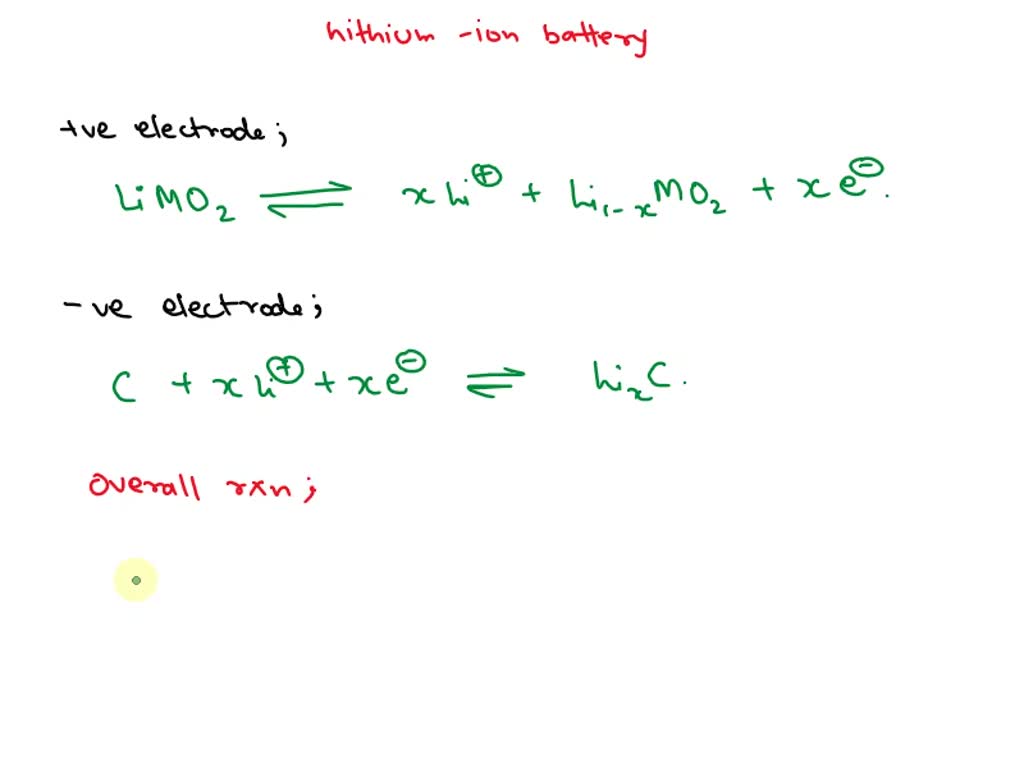 Lithium -ion battery
+ve electrode;
LiMO₂ ⇌ xLi⊕ + Li₁₋ₓMO₂ + xe⊖.
-ve electrode;
C + xLi⊕ + xe⊖ ⇌ LiₓC.
Overall rxn;